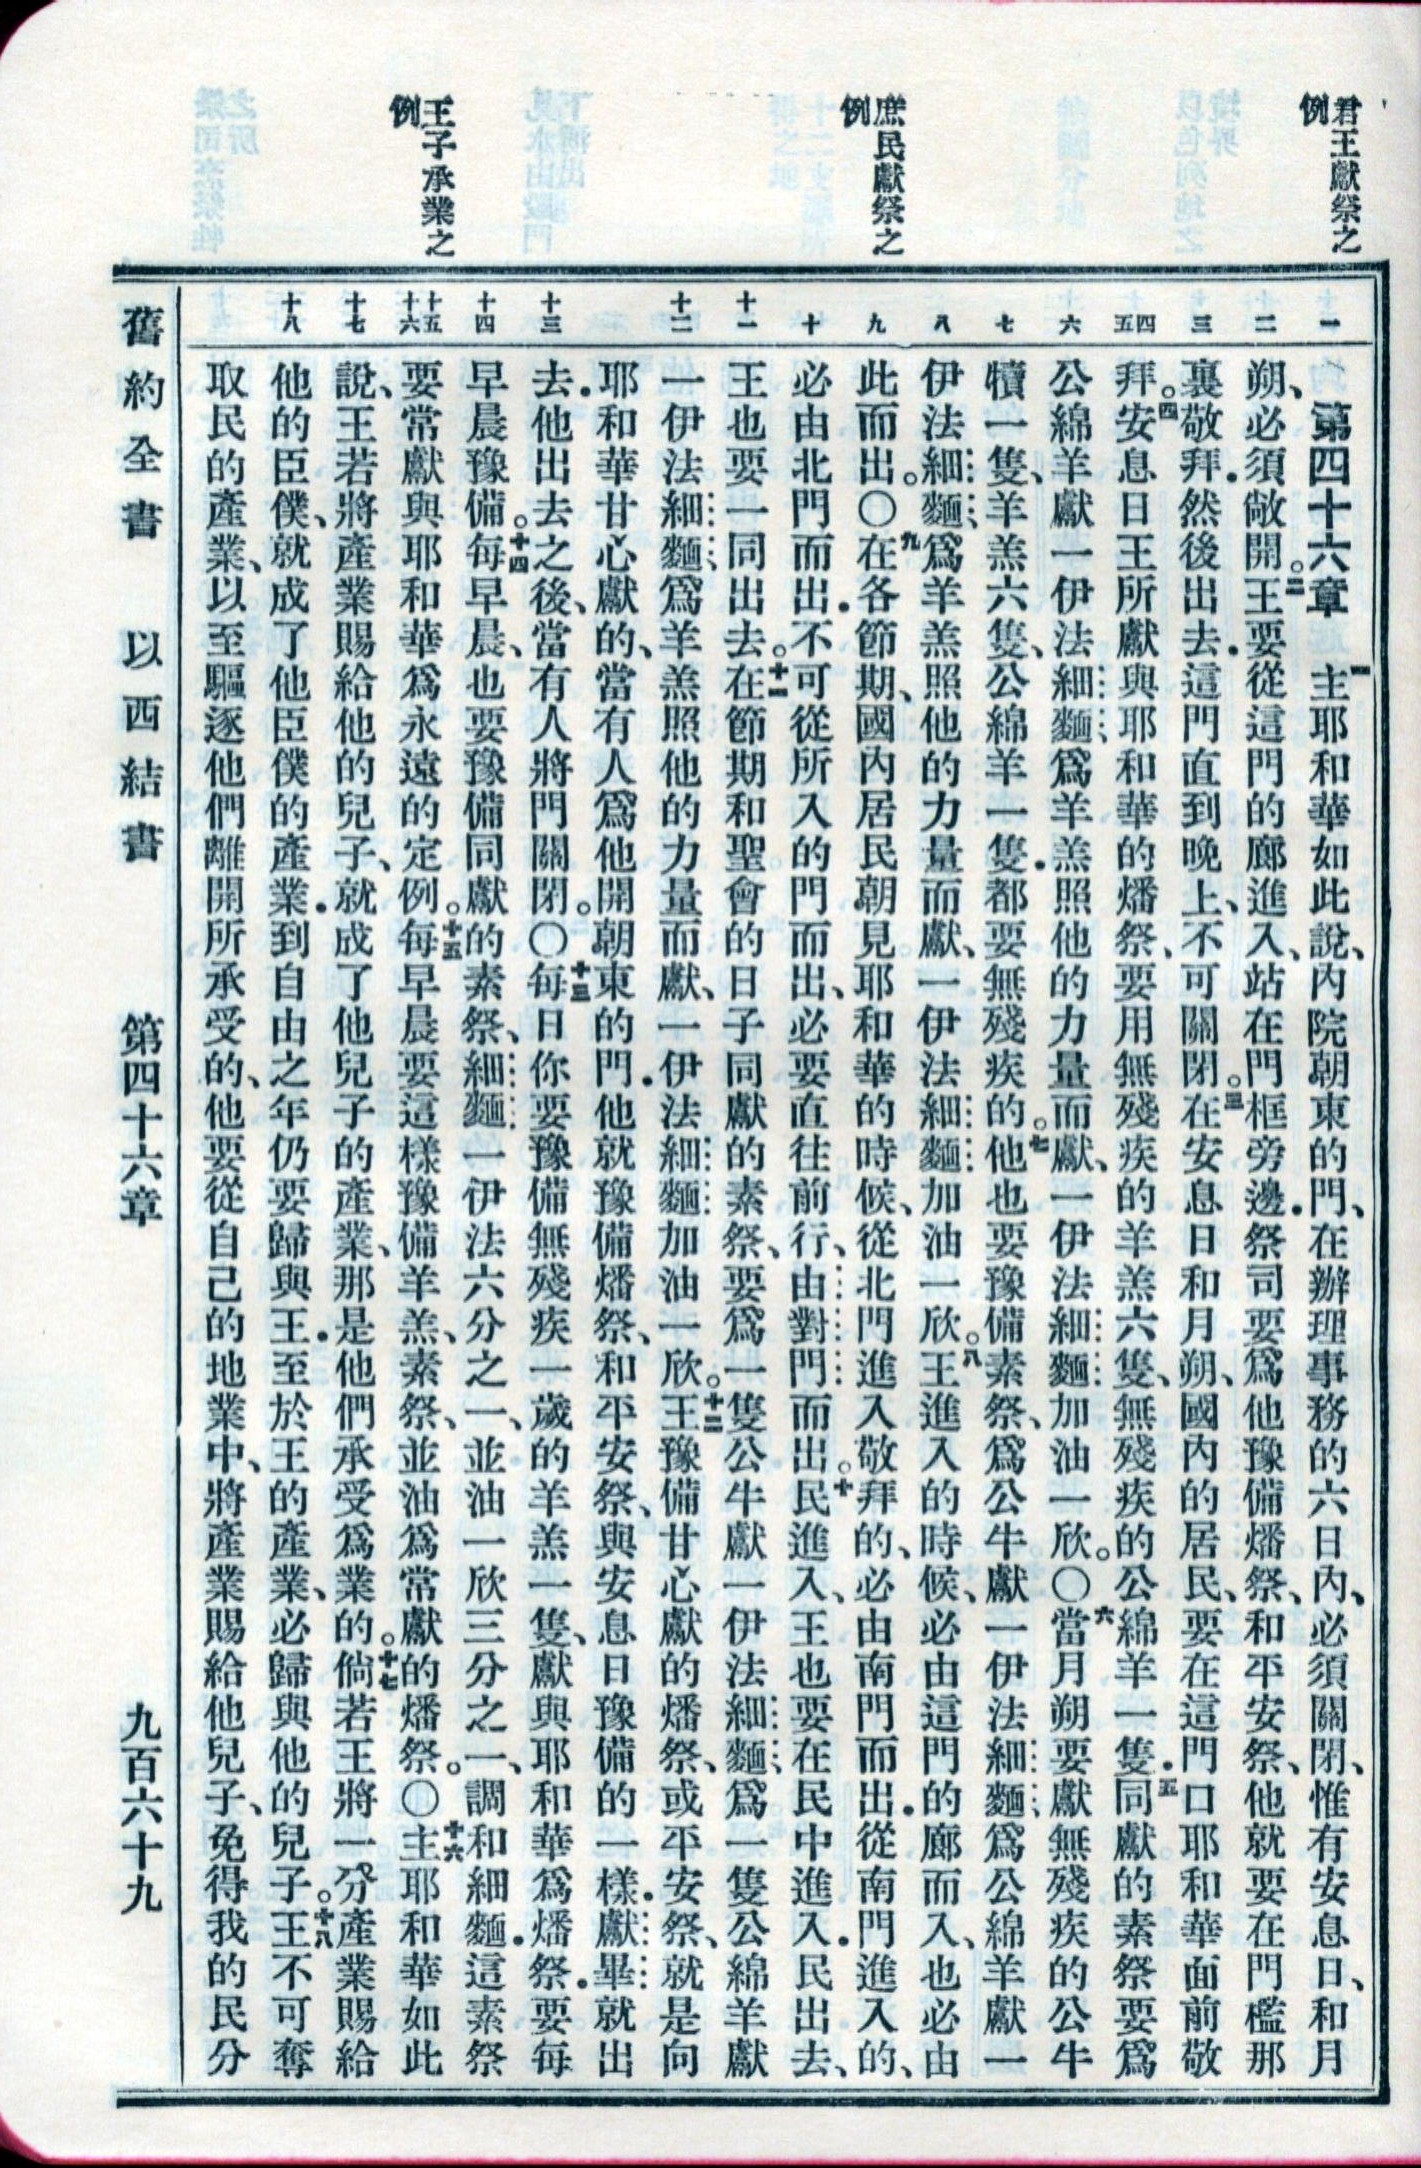 君王獻祭之
例
庶民獻祭之
例
王子承業之
例
一
二
三
四
五
六
七
八
九
十
十一
十二
十三
十四
十五
十六
十七
十八
第四十六章 一主耶和華如此說、內院朝東的門、在辦理事務的六日內、必須關閉、惟有安息日、和月
朔、必須敞開。二王要從這門的廊進入、站在門框旁邊．祭司要爲他豫備燔祭、和平安祭、他就要在門檻那
裏敬拜．然後出去這門直到晚上、不可關閉。三在安息日和月朔、國內的居民、要在這門口耶和華面前敬
拜。四安息日王所獻與耶和華的燔祭、要用無殘疾的羊羔六隻、無殘疾的公綿羊一隻．五同獻的素祭要爲
公綿羊獻一伊法細麵、爲羊羔照他的力量而獻、一伊法細麵加油一欣。〇六當月朔要獻無殘疾的公牛
犢一隻、羊羔六隻、公綿羊一隻．都要無殘疾的。七他也要豫備素祭、爲公牛獻一伊法細麵、爲公綿羊獻一
伊法細麵、爲羊羔照他的力量而獻、一伊法細麵加油一欣。八王進入的時候、必由這門的廊而入、也必由
此而出。〇九在各節期、國內居民朝見耶和華的時候、從北門進入敬拜的、必由南門而出．從南門進入的、
必由北門而出．不可從所入的門而出、必要直往前行、由對門而出。十民進入、王也要在民中進入．民出去、
王也要一同出去。十一在節期和聖會的日子同獻的素祭、要爲一隻公牛獻一伊法細麵、爲一隻公綿羊獻
一伊法細麵、爲羊羔照他的力量而獻、一伊法細麵加油一欣。十二王豫備甘心獻的燔祭、或平安祭、就是向
耶和華甘心獻的、當有人爲他開朝東的門．他就豫備燔祭、和平安祭、與安息日豫備的一樣．獻畢就出
去．他出去之後、當有人將門關閉。〇十三每日你要豫備無殘疾一歲的羊羔一隻、獻與耶和華爲燔祭．要每
早晨豫備。十四每早晨、也要豫備同獻的素祭、細麵一伊法六分之一、並油一欣三分之一、調和細麵．這素祭
要常獻與耶和華爲永遠的定例。十五每早晨要這樣豫備羊羔、素祭、並油爲常獻的燔祭。〇十六主耶和華如此
說、王若將產業賜給他的兒子、就成了他兒子的產業、那是他們承受爲業的。十七倘若王將一分產業賜給
他的臣僕、就成了他臣僕的產業．到自由之年仍要歸與王．至於王的產業、必歸與他的兒子。十八王不可奪
取民的產業、以至驅逐他們離開所承受的、他要從自己的地業中、將產業賜給他兒子、免得我的民分
舊約全書 以西結書 第四十六章 九百六十九